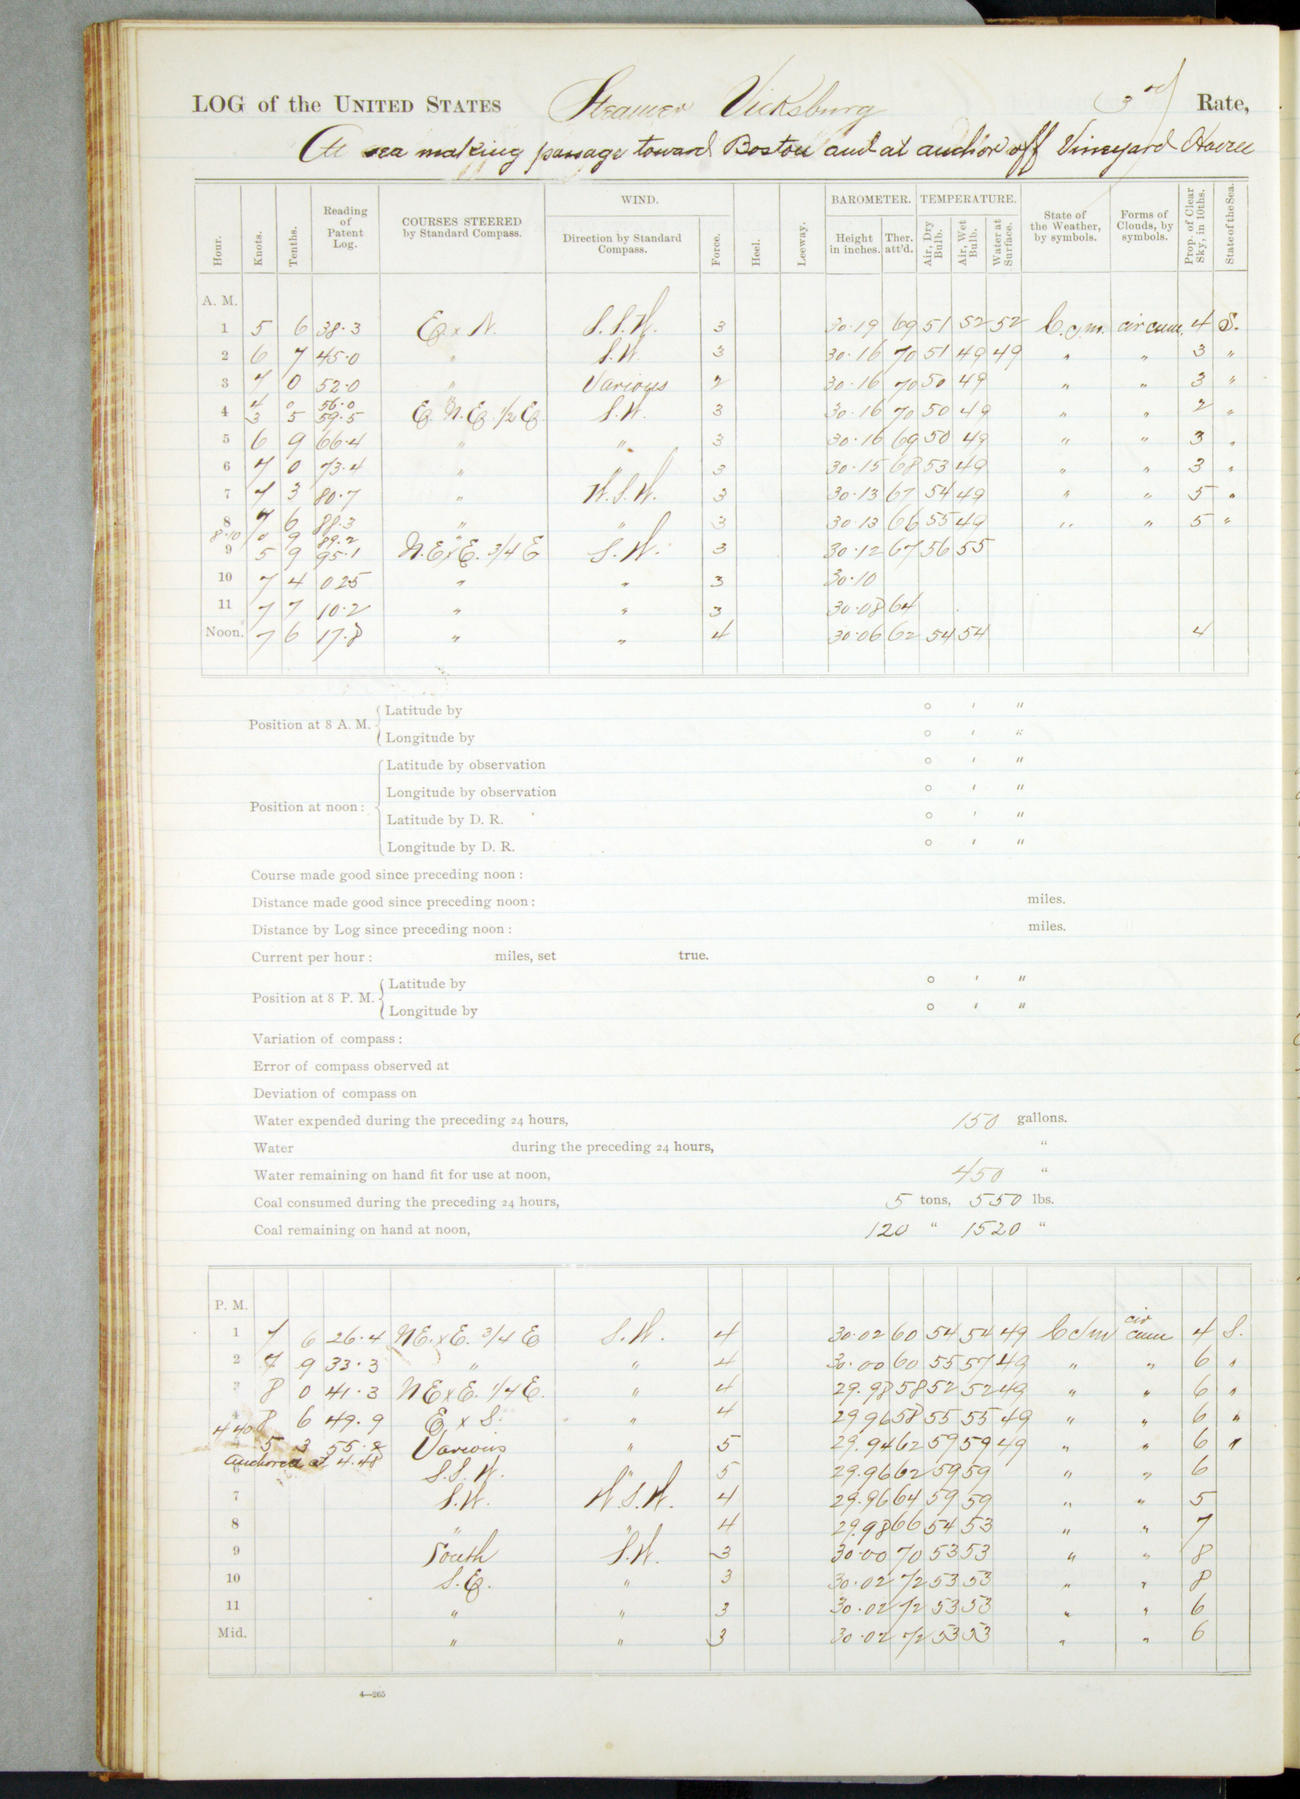 LOG of the UNITED STATES Steamer Vicksburg (3rd) Rate,
At sea making passage toward Boston and at anchor off Vineyard Haven
Hour. Knots. Tenths. Reading of Patent Log. COURSES STEERED by Standard Compass. WIND. Direction by Standard Compass. Force. Heel. Leeway. BAROMETER. Height in inches. Ther. att'd. TEMPERATURE. Air, Dry Bulb. Air, Wet Bulb. Water at Surface. State of the Weather, by symbols. Forms of Clouds, by symbols. Prop. of Clear Sky, in 10ths. State of the Sea.
A. M.
1 5 6 38.3 E x N. S.S.W. 3 30.19 69 51 52 52 b.c.m. cir cum. 4 S.
2 6 7 45.0 " S.W. 3 30.16 70 51 49 49 " " 3 "
3 7 0 52.0 " Various 2 30.16 70 50 49 " " 3 "
4 0 56.0
4 3 5 59.5 E.N.E. 1/2 E. S.W. 3 30.16 70 50 49 " " 2 "
5 6 9 66.4 " " 3 30.16 69 50 49 " " 3 "
6 7 0 73.4 " " 3 30.15 68 53 49 " " 3 "
7 7 3 80.7 " W.S.W. 3 30.13 67 54 49 " " 5 "
8 7 6 88.3 " " 3 30.13 66 55 49 " " 5 "
8.10 0 9 89.2 "
9 5 9 95.1 N.E x E. 3/4 E S.W. 3 30.12 67 56 55
10 7 4 025 " " 3 30.10
11 7 7 10.2 " " 3 30.08 64
Noon. 7 6 17.8 " " 4 30.06 62 54 54 4
Position at 8 A. M. Latitude by ° ' "
Longitude by ° ' "
Position at noon: Latitude by observation ° ' "
Longitude by observation ° ' "
Latitude by D. R. ° ' "
Longitude by D. R. ° ' "
Course made good since preceding noon:
Distance made good since preceding noon: miles.
Distance by Log since preceding noon: miles.
Current per hour: miles, set true.
Position at 8 P. M. Latitude by ° ' "
Longitude by ° ' "
Variation of compass:
Error of compass observed at
Deviation of compass on
Water expended during the preceding 24 hours, 150 gallons.
Water during the preceding 24 hours, "
Water remaining on hand fit for use at noon, 450 "
Coal consumed during the preceding 24 hours, 5 tons, 550 lbs.
Coal remaining on hand at noon, 120 " 1520 "
P. M.
1 7 6 26.4 NE. x E. 3/4 E S.W. 4 30.02 60 54 54 49 b c m cir cum 4 S.
2 7 9 33.3 " " 4 30.00 60 55 57 49 " " 6 "
3 8 0 41.3 NE x E. 1/4 E. " 4 29.98 58 52 52 49 " " 6 "
4 8 6 49.9 E x S. " 4 29 96 58 55 55 49 " " 6 "
4 40 5 3 55.2 Various " 5 29.94 62 59 59 49 " " 6 "
Anchored at 4.48
6 S.S.W. " 5 29.96 62 59 59 " " 6
7 S.W. W.S.W. 4 29.96 64 59 59 " " 5
8 " " 4 29.98 66 54 53 " " 7
9 South S.W. 3 30.00 70 53 53 " " 8
10 S.E. " 3 30.02 72 53 53 " " 8
11 " " 3 30.02 72 53 53 " " 6
Mid. " " 3 30.02 72 53 53 " " 6
4—265